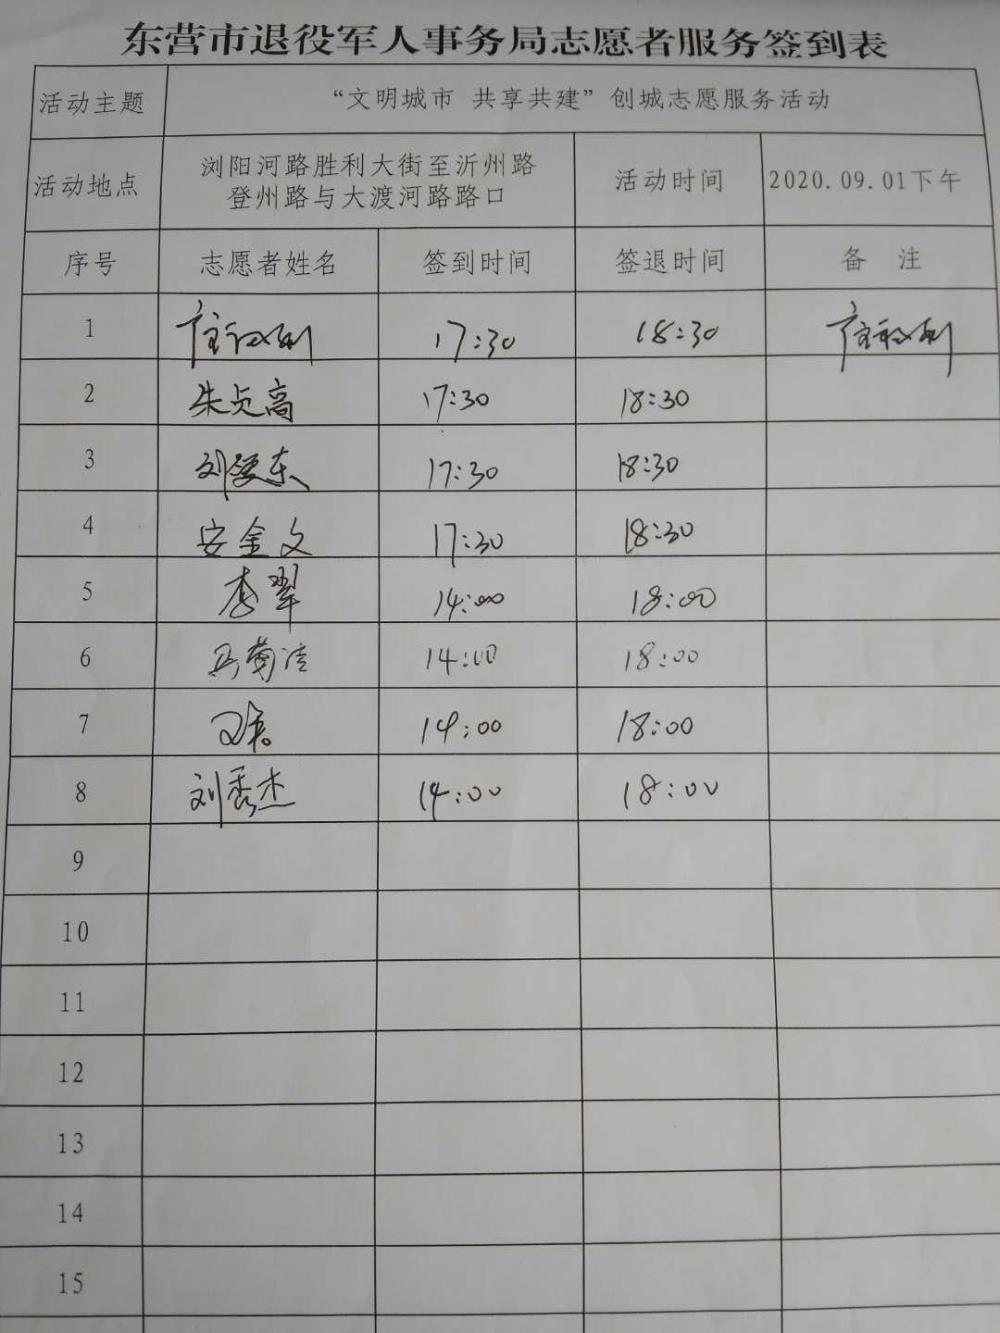 东营市退役军人事务局志愿者服务签到表
活动主题 “文明城市 共享共建”创城志愿服务活动
活动地点 浏阳河路胜利大街至沂州路 活动时间 2020.09.01下午
登州路与大渡河路路口
序号 志愿者姓名 签到时间 签退时间 备 注
1 17:30 18:30
2 朱贞高 17:30 18:30
3 刘 东 17:30 18:30
4 安金文 17:30 18:30
5 李翠 14:00 18:00
6 14:00 18:00
7 14:00 18:00
8 刘秀杰 14:00 18:00
9
10
11
12
13
14
15